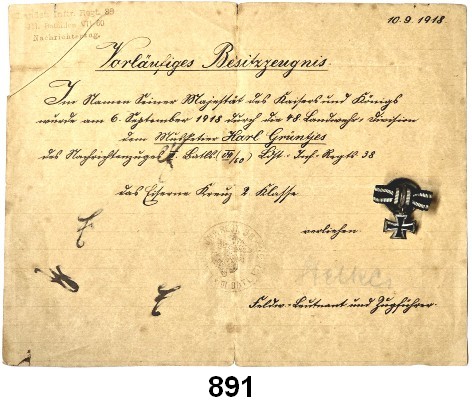 Landst. Infr. Regt. 38
VII. 60
Nachrichtenzug.
10.9.1918
Vorläufiges Besitzzeugnis.
Im Namen Seiner Majestät des Kaisers und Königs
wurde am 6. September 1918 durch die 48. Landwehr-Division
dem Musketier Karl Grüntjes
des Nachrichtenzuges II. Batls. (VII/60) Ldst.-Inf.-Regts 38
das Eiserne Kreuz 2 Klasse
verliehen.
Feldw.-Leutnant und Zugführer.
891